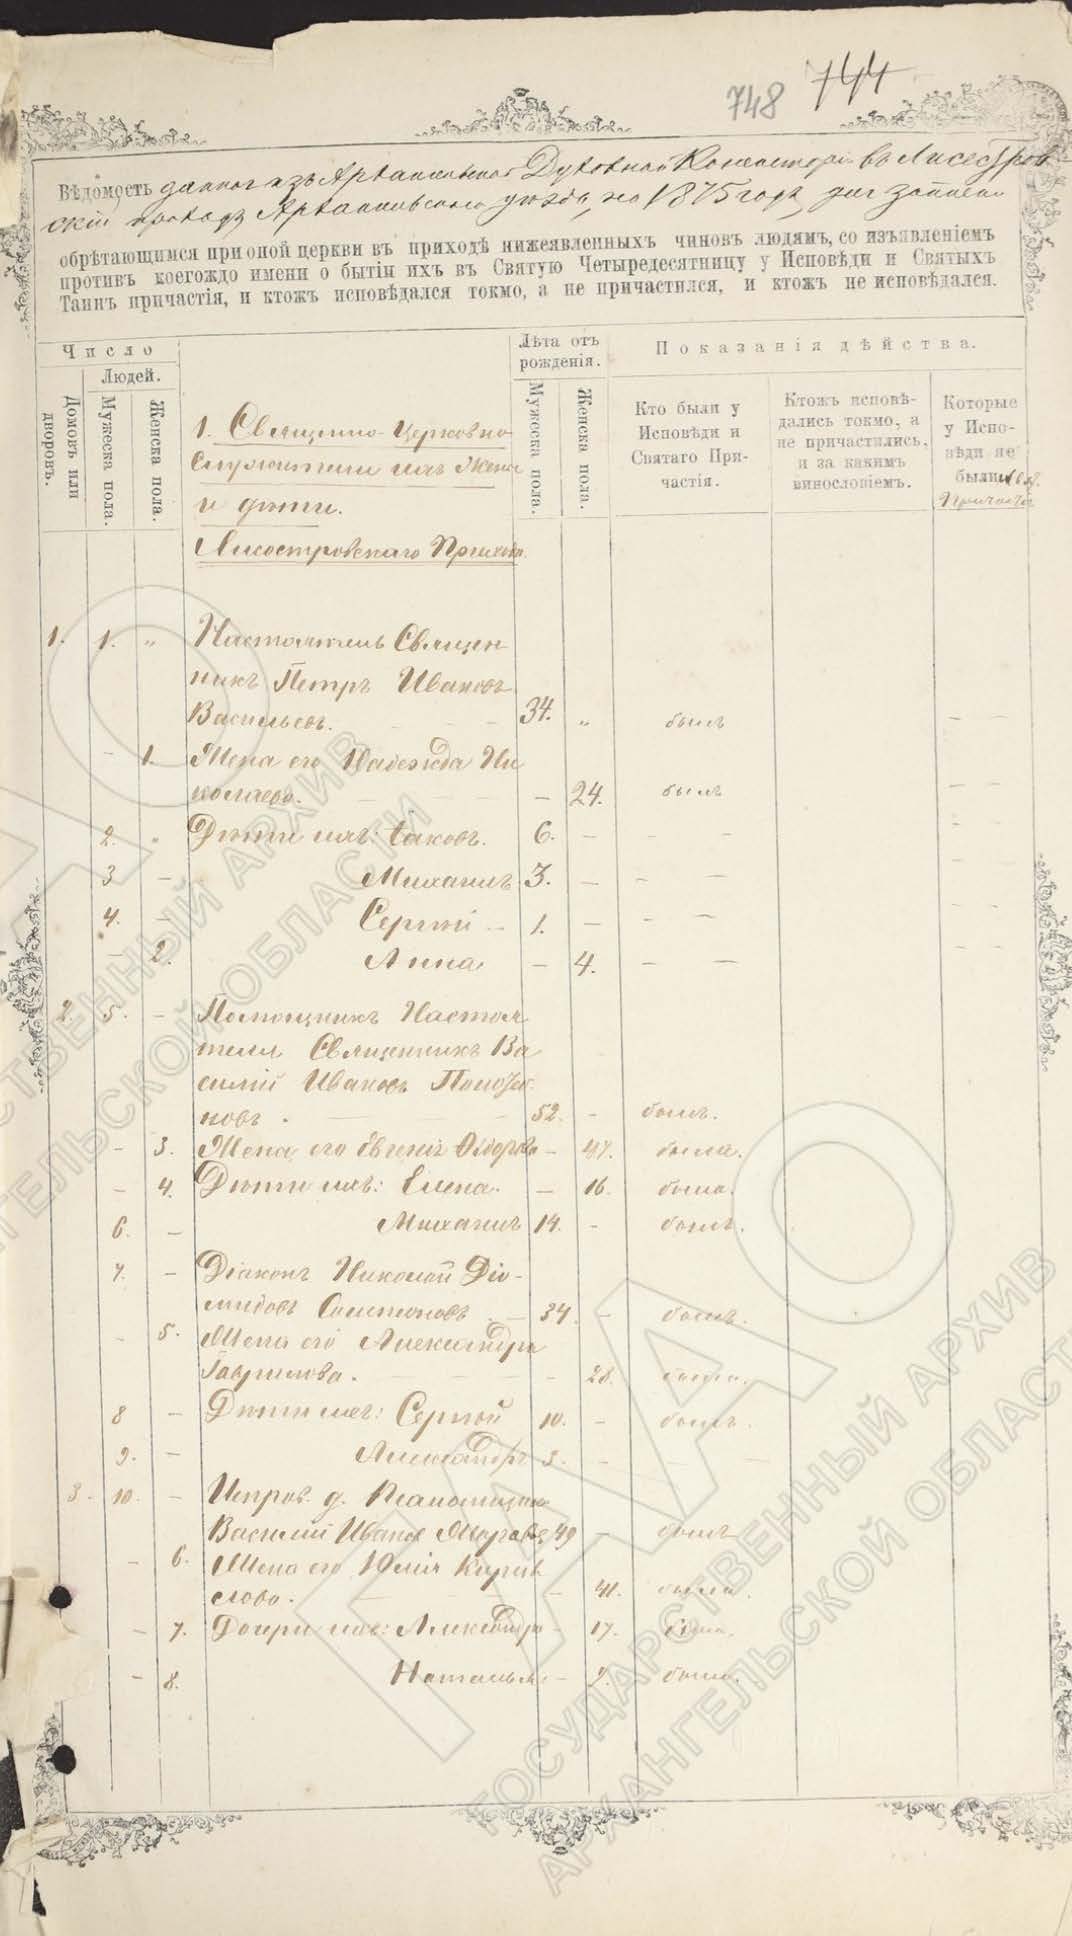 748 744
Вѣдомость данная изъ Архангельской Духовной Консисторіи въ Лисестров
скій приходъ Архангельскаго уѣзда, на 1875 годъ, для записи
обрѣтающимся при оной церкви въ приходѣ нижеявленныхъ чиновъ людямъ, со изъявленіемъ
противъ коегождо имени о бытіи ихъ въ Святую Четыредесятницу у Исповѣди и Святыхъ
Таинъ причастія, и ктожъ исповѣдался токмо, а не причастился, и ктожъ не исповѣдался.
Число
Людей.
Домовъ или дворовъ.
Мужеска пола.
Женска пола.
1. Священно-церковно-
служители ихъ жены
и дѣти.
Лисестровскаго Прихода.
Лѣта отъ
рожденія.
Мужеска пола.
Женска пола.
Показанія дѣйства.
Кто были у
Исповѣди и
Святаго При-
частія.
Ктожъ исповѣ-
дались токмо, а
не причастились,
и за какимъ
винословіемъ.
Которые
у Испо-
вѣди не
были
1. 1. „ Настоятель Священ
никъ Петръ Ивановъ
Васильевъ. 34. „ былъ
1. Жена его Надежда Ни
колаева. 24. былъ
2. „ Дѣти ихъ: Іаковъ. 6.
3 Михаилъ 3.
4. Сергій 1.
2. Анна 4.
2. 5. Помощникъ Настоя
теля Священникъ Ва
силій Ивановъ
новъ. 52. былъ.
3. Жена его Евгенія Ѳедоров 47. была.
4. Дѣти ихъ: Елена. 16. была.
6. Михаилъ 14. былъ.
7. Діаконъ Николай Діо-
мидовъ 34. былъ.
5. Жена его Александра
Гаврилова. 28. была.
8 Дѣти ихъ: Сергѣй 10. былъ.
9. Александръ 3.
3. 10. Исправ. д. Псаломщика
Василій Иванов 49 былъ
6. Жена его Юлія Кирил
лова. 41. была.
7. Дочери ихъ: Александра 17. была.
8. Наталья 9. была.
ГААО
ГОСУДАРСТВЕННЫЙ АРХИВ
АРХАНГЕЛЬСКОЙ ОБЛАСТИ